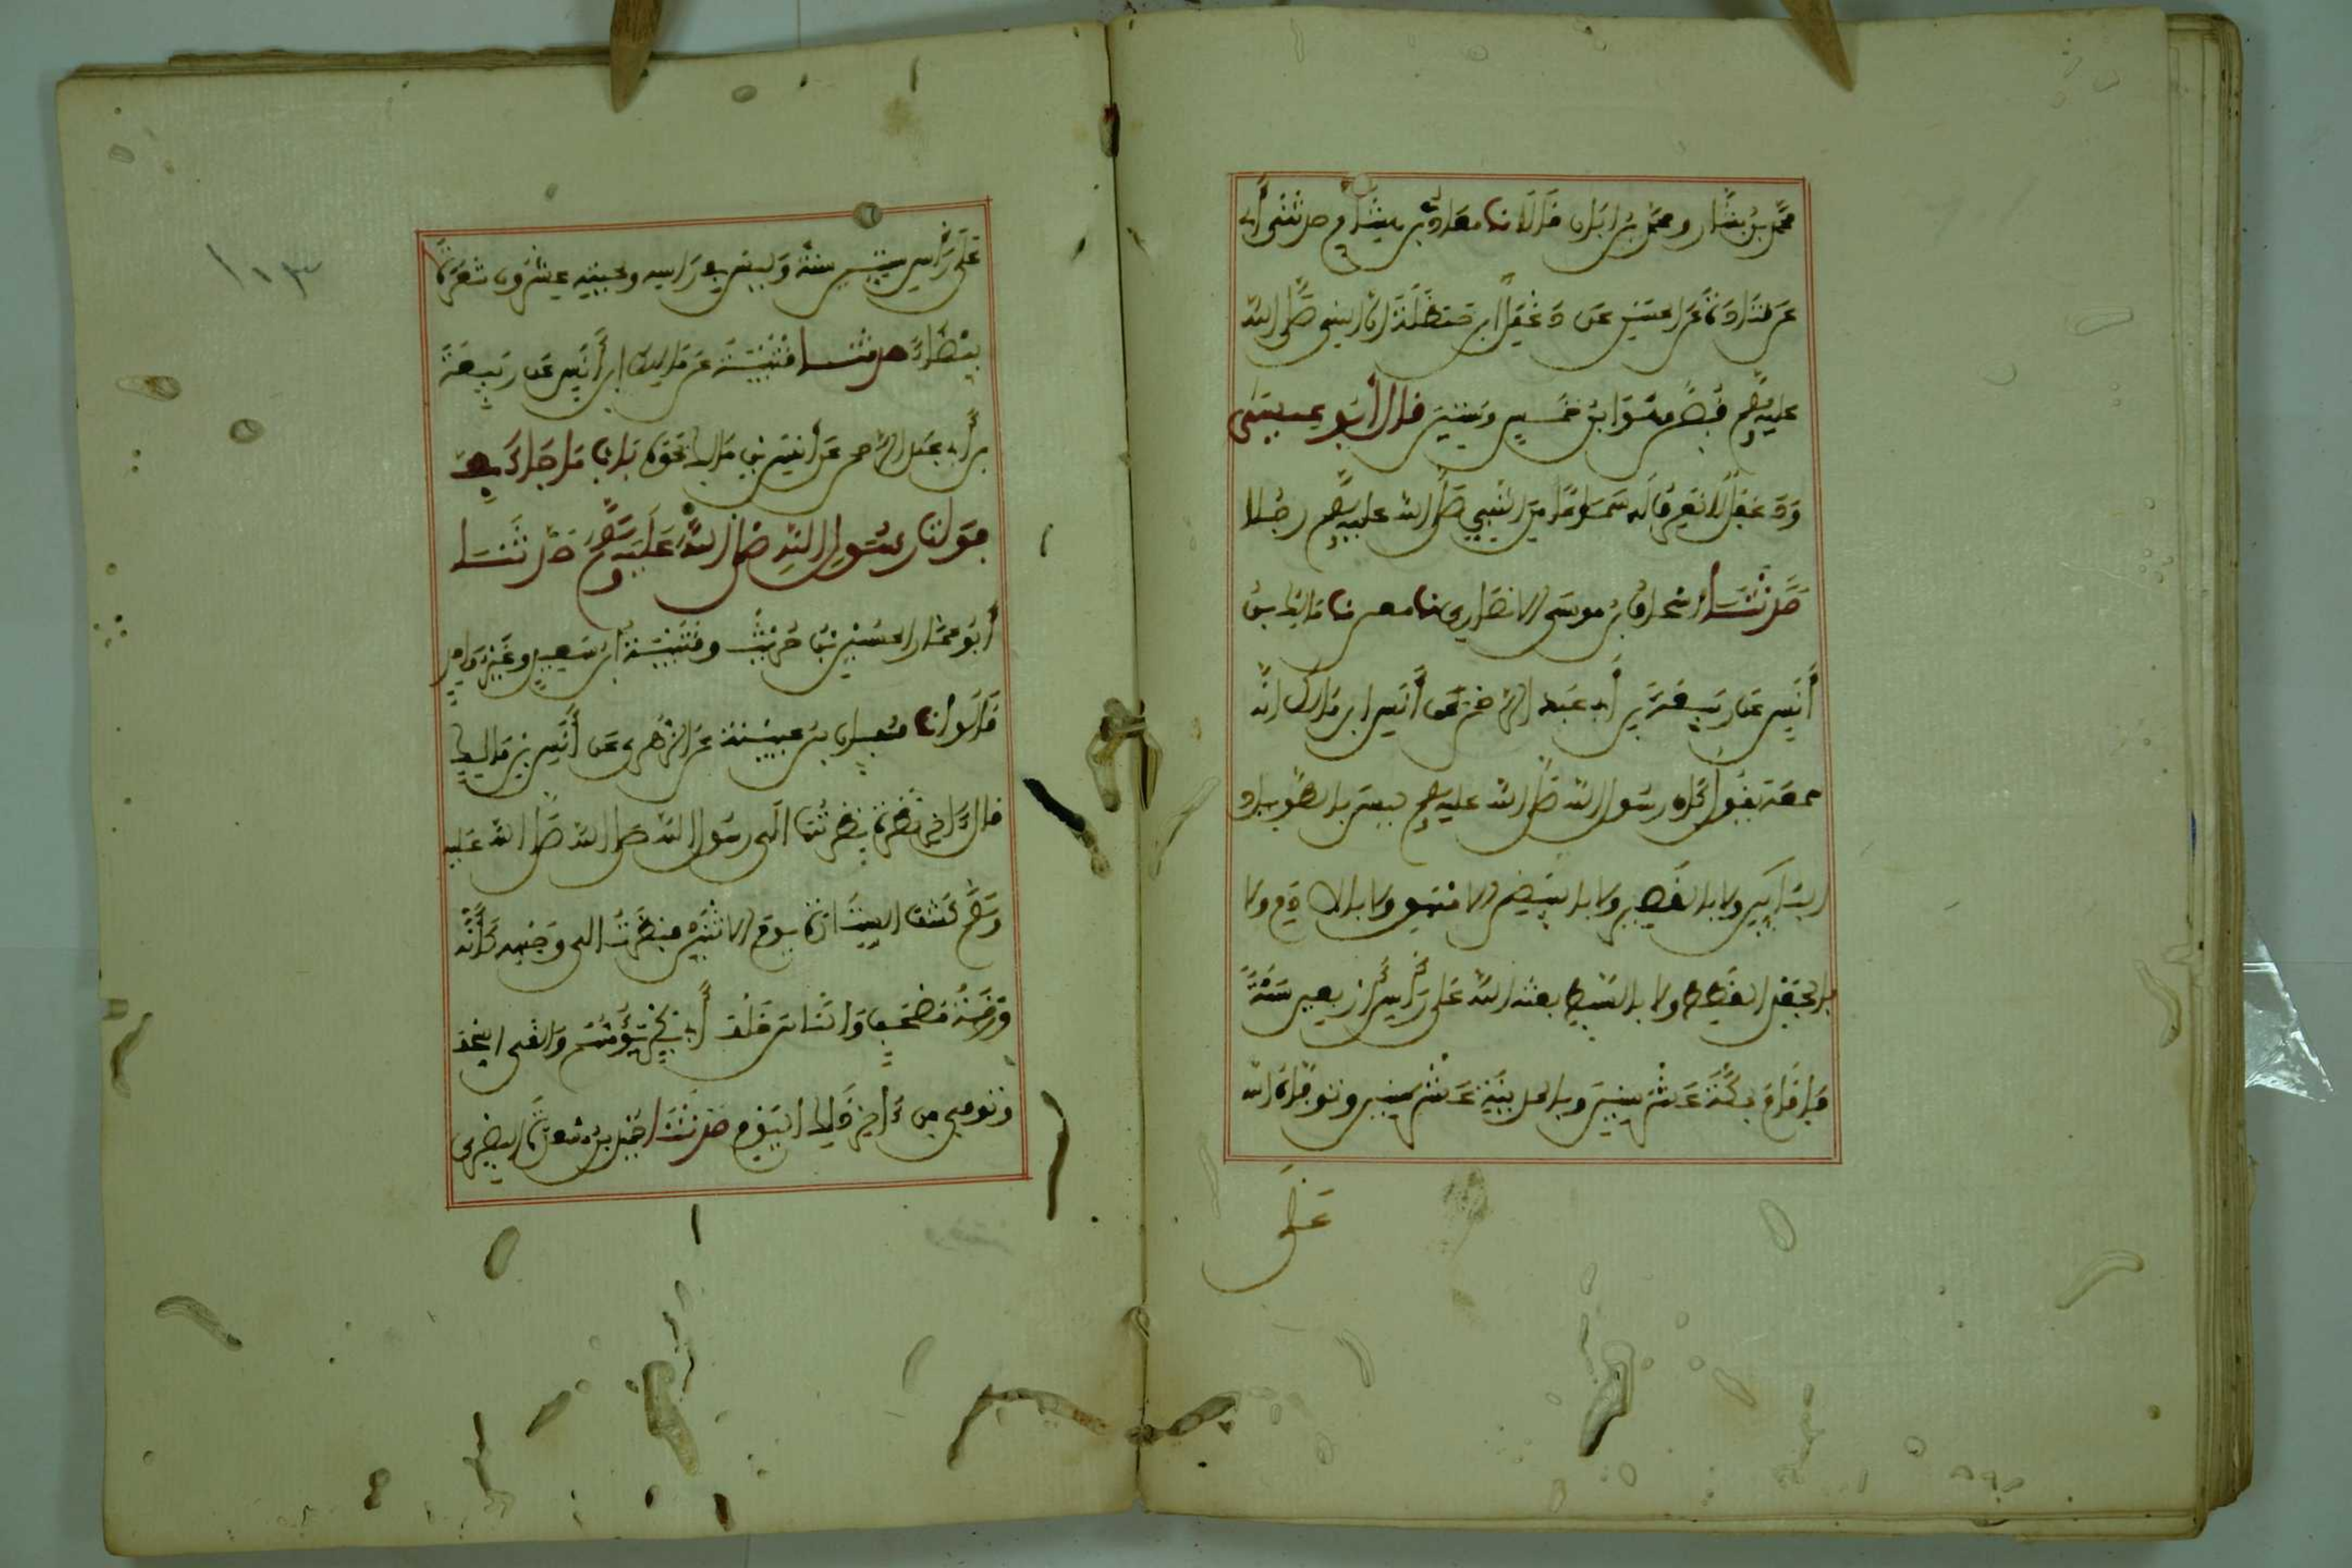 محمد بن بشار ومحمد بن ابان قالا نا معاذ بن هشام حدثني أبي
عن قتادة عن الحسن عن دغفل ابن حنظلة ان النبي صلى الله
عليه وسلم قبض وهو ابن خمس وستين قال أبو عيسى
ودغفل لا نعرف له سماعا من النبي صلى الله عليه وسلم رجلا
حدثنا إسحاق بن موسى الانصاري نا معن نا مالك بن
أنس عن ربيعة بن أبي عبد الرحمن عن أنس ابن مالك انه
سمعه يقول كان رسول الله صلى الله عليه وسلم ليس بالطويل
البائن ولا بالقصير ولا بالابيض الامهق ولا بالادم ولا
بالجعد القطط ولا بالسبط بعثه الله على رأس أربعين سنة
فاقام بمكة عشر سنين وبالمدينة عشر سنين وتوفاه الله
على
١٠٣
على رأس ستين سنة وليس في راسه ولحيته عشرون شعرة
بيضاء حدثنا قتيبة عن مالك ابن أنس عن ربيعة
بن أبي عبد الرحمن عن أنس بن مالك نحوه باب ما جاء في
وفاة رسول الله صلى الله عليه وسلم حدثنا
أبو عمار الحسين بن حريث وقتيبة ابن سعيد وغير واحد
قالوا نا سفيان بن عيينة عن الزهري عن أنس بن مالك
قال اخر نظرة نظرتها الى رسول الله صلى الله صلى الله عليه
وسلم كشف الستارة يوم الاثنين فنظرت الى وجهه كأنه
ورقة مصحف والناس خلف أبي بكر والقى السجف
وتوفي من اخر ذلك اليوم حدثنا حميد بن مسعدة البصري